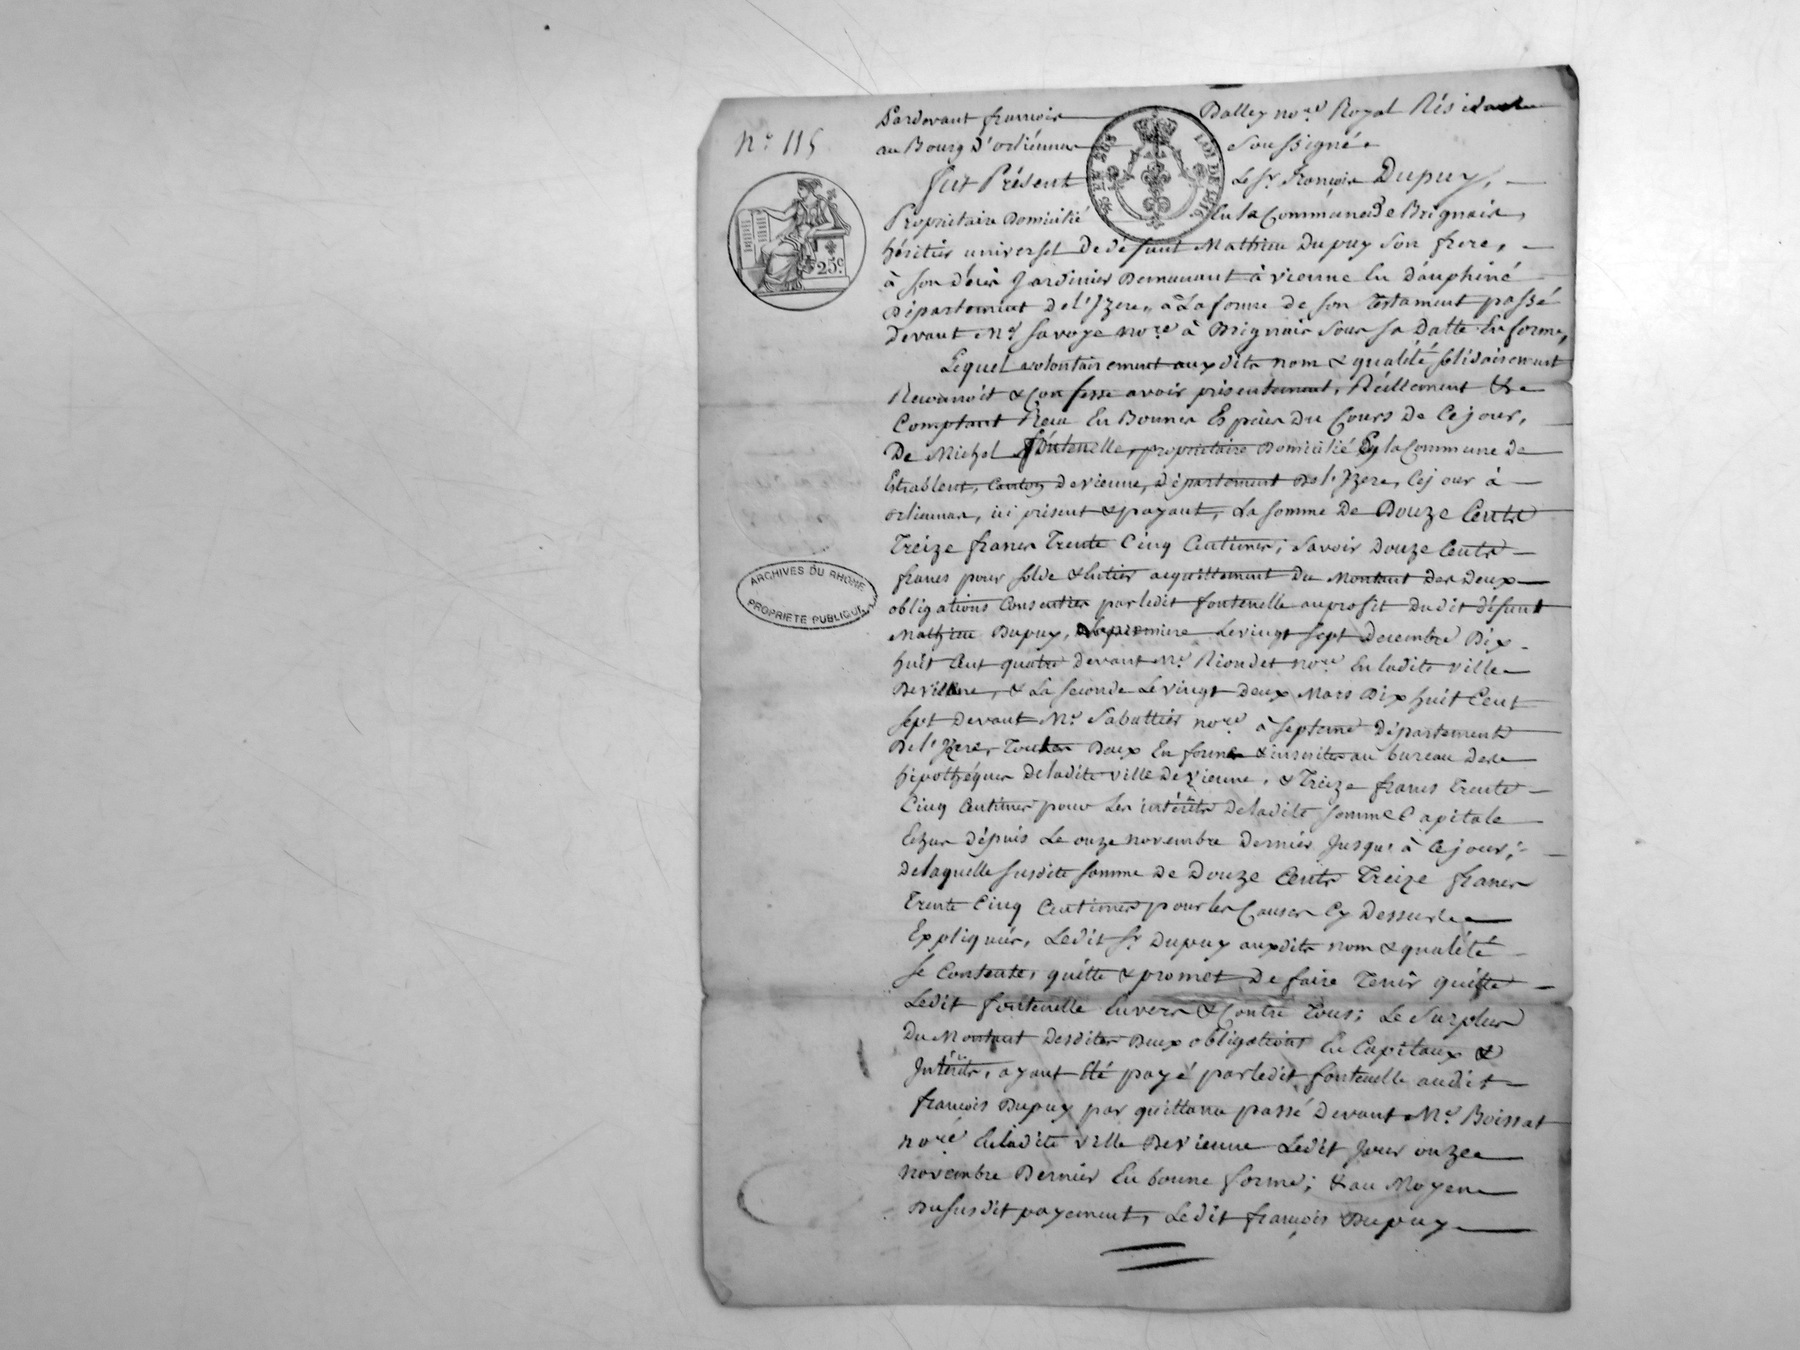 N.º 115
Pardevant françois Dalley no.re Royal Résidant
au Bourg D'orliénnas soussigné
fut Présent le S.r françois Dupuy,
Propriétaire Domicilié En la Commune de Brignais,
héritier universel De defunt Mathieu Dupuy son frere,
à son décès Jardinier Demeurant à vienne En dauphiné
Département De l'Izere, à La forme de son Testament passé
Devant M.e Savoye no.re à Brignais sous sa Datte En forme,
Lequel volontairement auxdits nom & qualité solidairement
Reconnoit & Confesse avoir présentement, Réellement &
Comptant Reçu En Bonnes Espéces Du Cours de Ce jour,
De Michel fontenelle, propriétaire Domicilié En la Commune de
Estrablent, Canton de vienne, département De l'Izere, Ce jour à
orliennas, ici présent & payant, La somme De Douze Cents
Treize francs Trente Cinq Centimes; savoir Douze Cents
francs pour solde & Entier acquittement Du Montant Des Deux
obligations Consenties par ledit fontenelle au profit Dudit défunt
Mathieu Dupuy, La premiere Le vingt sept Decembre Dix
huit Cent quatre devant M.e Riondet no.re En ladite ville
De vienne, & La seconde Le vingt Deux Mars Dix huit Cent
sept devant M.e Sabattier no.re à Septeme département
De l'Izere, Toutes Deux En forme & inscrites au bureau Des
hipothéques De ladite ville De vienne, & Treize francs Trente
Cinq Centimes pour Les intérêts De ladite somme Capitale
Echus dépuis Le onze novembre Dernier Jusqu'à Ce jour;
De laquelle susdite somme De Douze Cents Treize francs
Trente Cinq Centimes pour les Causes Cy Dessus
Expliquées, Ledit S.r Dupuy auxdits nom & qualité
se Contente, quitte & promet De faire Tenir quitte
Ledit fontenelle Envers & Contre Tous; Le Surplus
Du Montant Desdites Deux obligations En Capitaux &
Intérêts, ayant Eté payé par ledit fontenelle audit
françois Dupuy par quittance passé Devant M.e Boissat
no.re En ladite ville De vienne Ledit Jour onze
novembre Dernier En bonne forme; & au Moyen
Du susdit payement, Ledit françois Dupuy
25 c.
ARCHIVES DU RHÔNE
PROPRIÉTÉ PUBLIQUE
LOI DE 1816